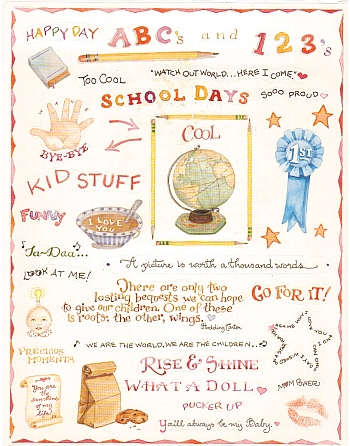 HAPPY DAY
ABC's and 123's
TOO COOL
"WATCH OUT WORLD...HERE I COME."
SCHOOL DAYS
SOOO PROUD
BYE-BYE
COOL
1ST
KID STUFF
FUNNY
I LOVE
YOU
Ta-Daa...
LOOK AT ME!
A picture is worth a thousand words
There are only two
lasting bequests we can hope
to give our children. One of these
is roots; the other, wings.
Hodding Carter
GO FOR IT!
WE ARE THE WORLD, WE ARE THE CHILDREN...
PRECIOUS
MOMENTS
You are
the
sunshine
of my
life!
RISE & SHINE
WHAT A DOLL
PUCKER UP
You'll always be my Baby
MOM POWER!